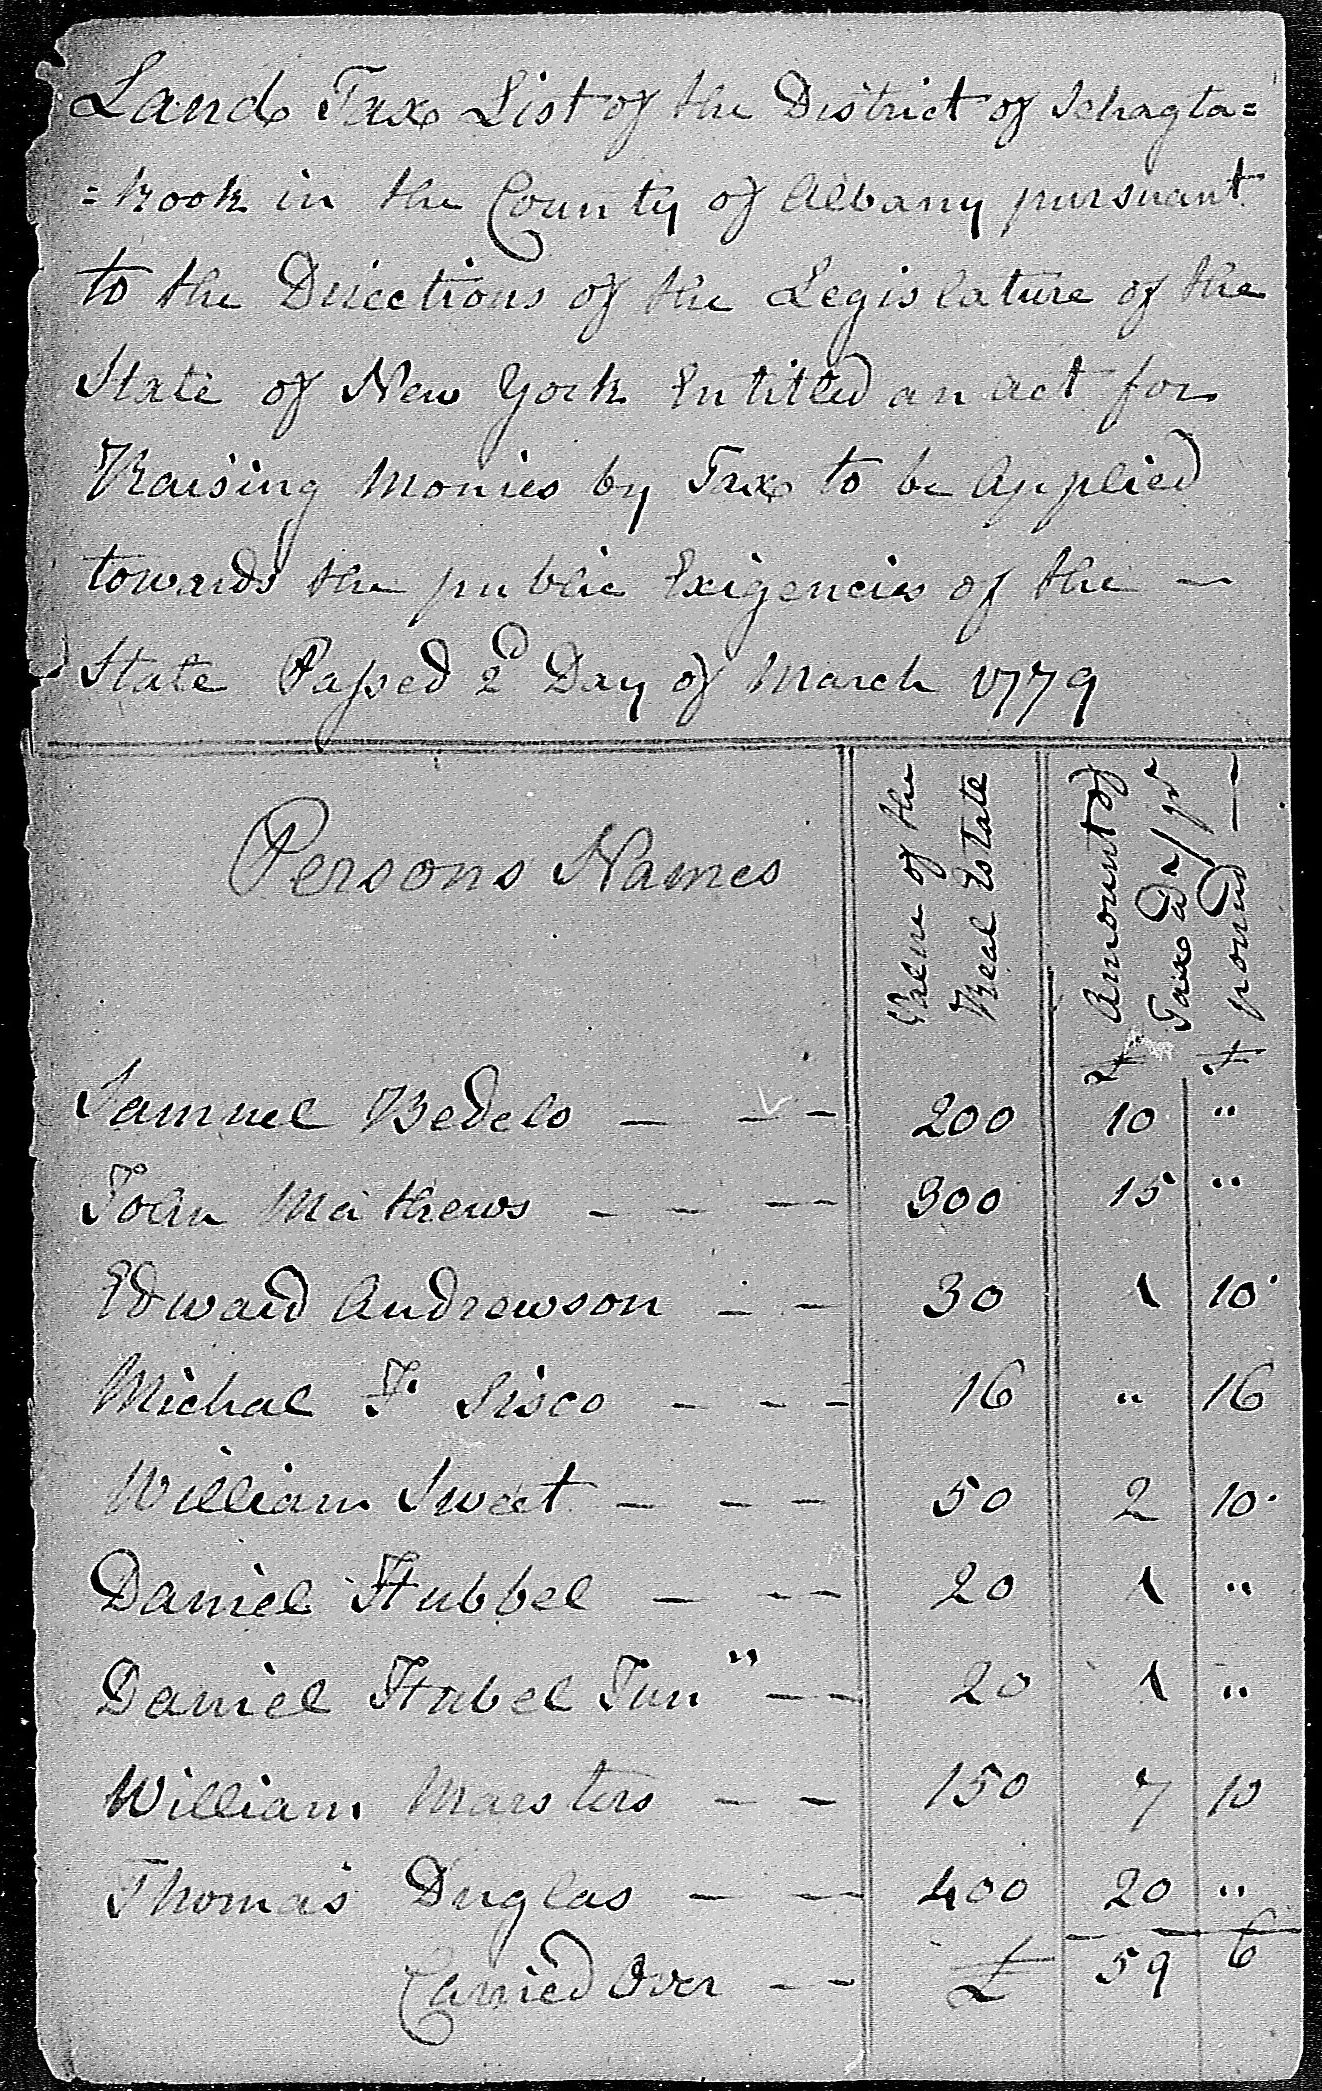 Land Tax List of the District of Schagta=
=kook in the County of Albany pursuant
to the Directions of the Legislature of the
State of New York Entitled an act for
Raising Monies by Tax to be Applied
towards the public Exigencies of the —
State Passed 2d Day of March 1779
Persons Names
Value of the
Real Estate
Amount of
Tax a 1/ pr
pound —
£ £
Samuel Bedels — — — 200 10 "
John Mathews — — — 300 15 "
Edward Andrewson — — 30 1 10
Michal F Sisco — — — 16 " 16
William Sweet — — — 50 2 10
Daniel Hubbel — — — 20 1 "
Daniel Hubel Jun " — — 20 1 "
William Marsters — — 150 7 10
Thomas Duglas — — 400 20 "
Carried Over — — £ 59 6